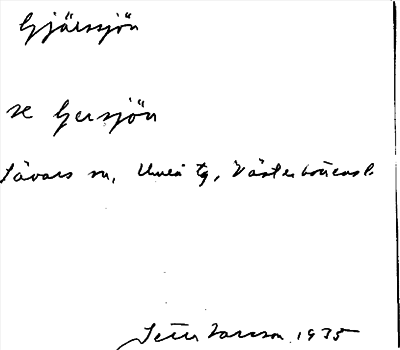 Gjärssjön
se Gersjön
Sävars sn, Umeå tg, Västerbottensl.
1935